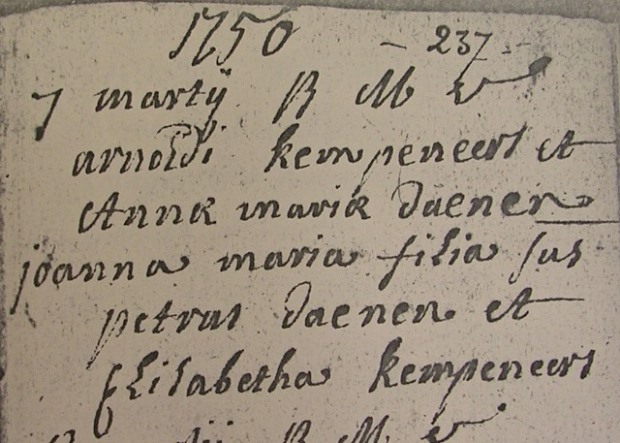 1750 - 237 -
7 martij B M V
arnoldi kempeneers et
Annæ mariæ daenen
joanna maria filia sus
petrus daenen et
Elisabetha kempeneers
B M V